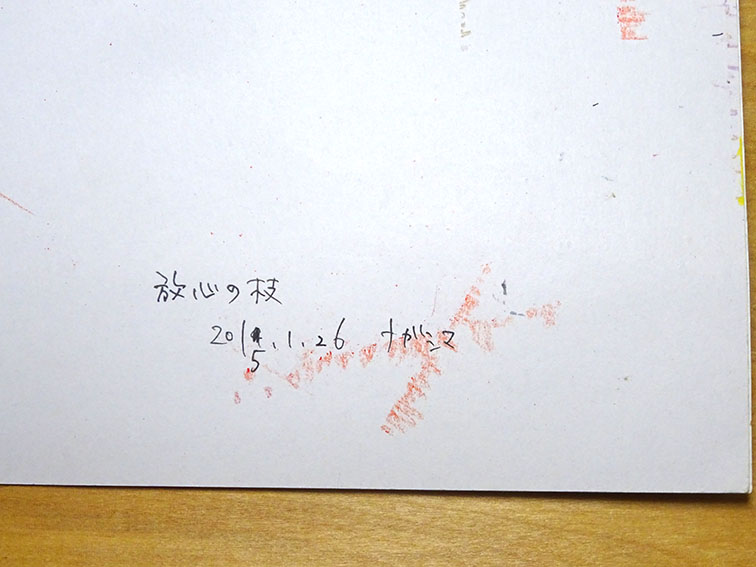 放心の枝
2015.1.26 ナガシマ